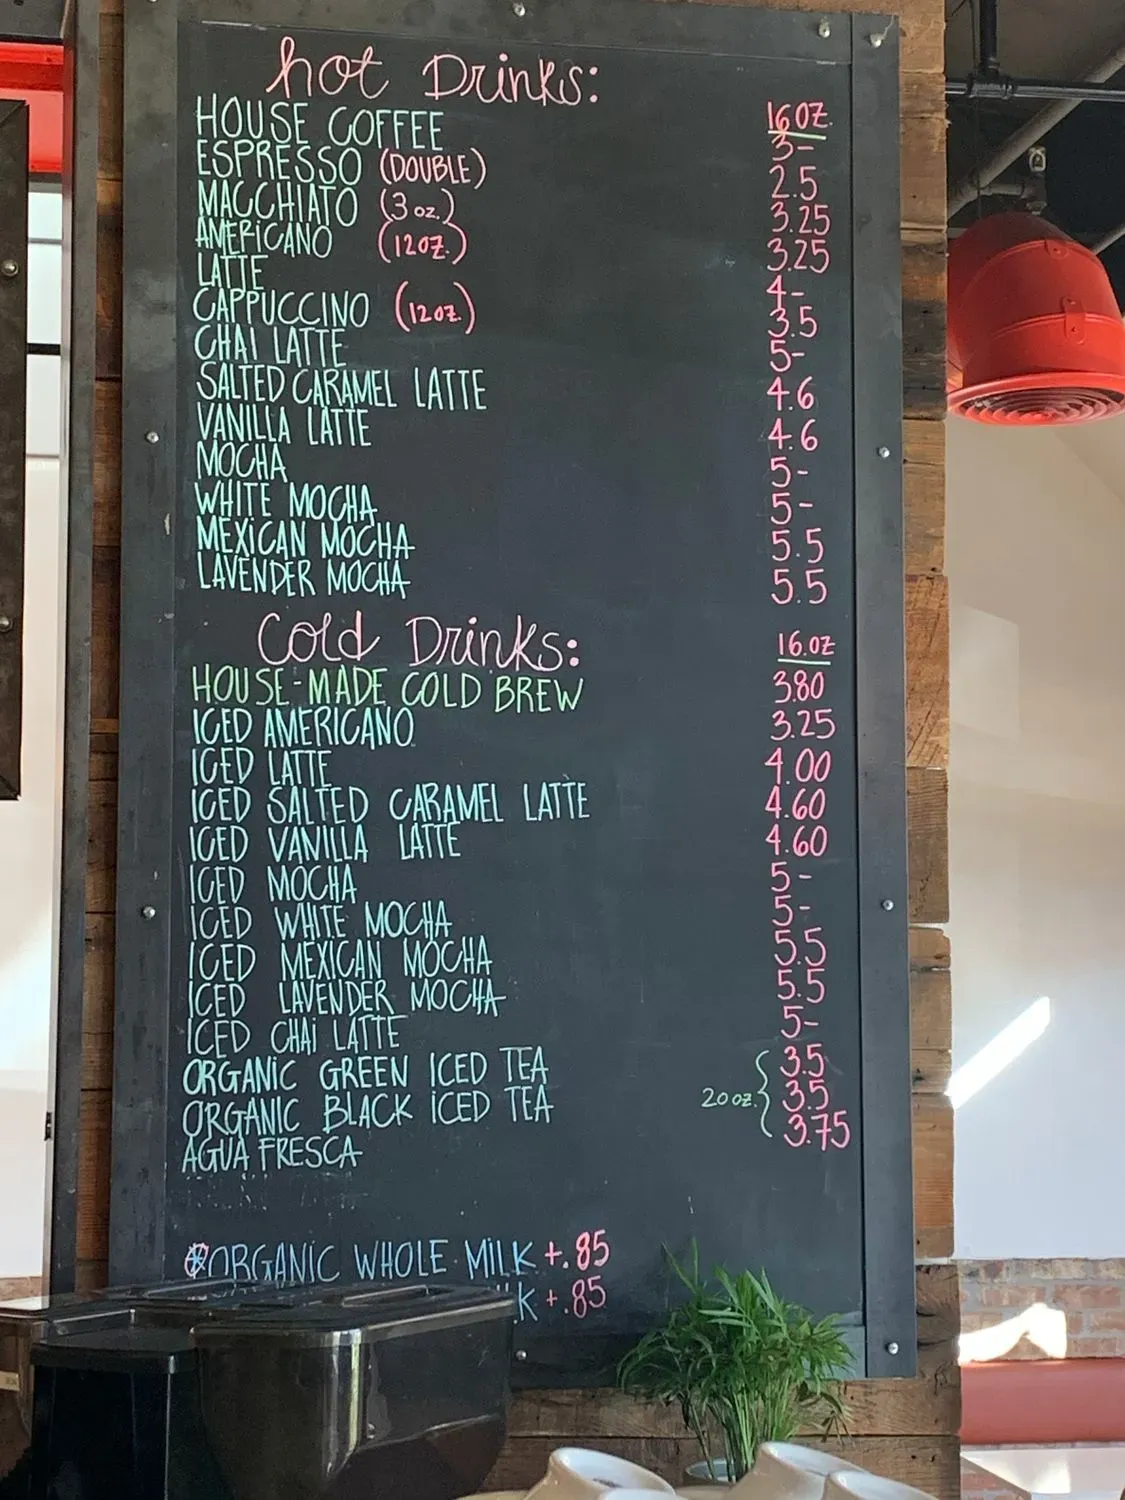 hot Drinks:
16OZ.
HOUSE COFFEE 3-
ESPRESSO (DOUBLE) 2.5
MACCHIATO (3 oz.) 3.25
AMERICANO (12OZ.) 3.25
LATTE 4-
CAPPUCCINO (12OZ.) 3.5
CHAI LATTE 5-
SALTED CARAMEL LATTE 4.6
VANILLA LATTE 4.6
MOCHA 5-
WHITE MOCHA 5-
MEXICAN MOCHA 5.5
LAVENDER MOCHA 5.5
Cold Drinks: 16.OZ
HOUSE-MADE COLD BREW 3.80
ICED AMERICANO 3.25
ICED LATTE 4.00
ICED SALTED CARAMEL LATTE 4.60
ICED VANILLA LATTE 4.60
ICED MOCHA 5-
ICED WHITE MOCHA 5-
ICED MEXICAN MOCHA 5.5
ICED LAVENDER MOCHA 5.5
ICED CHAI LATTE 5-
ORGANIC GREEN ICED TEA 3.5
ORGANIC BLACK ICED TEA 20 oz. 3.5
AGUA FRESCA 3.75
*ORGANIC WHOLE MILK +.85
+.85